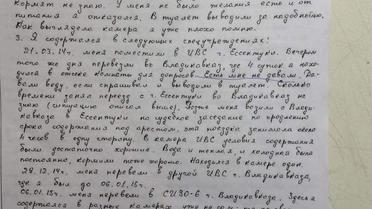 кормят не знаю. У меня не было желания есть и от
питания я отказался. В туалет выводили за надобностью.
Как выглядела камера я уже плохо помню.
3. Я содержался в следующих спецучреждениях:
21.03.14г. меня поместили в ИВС г. Ессентуки. Вечером
того же дня перевезли во Владикавказ, где 4 суток я нахо-
дился в отсеке комнате для допросов. Есть мне не давали. Да-
вали воду, если спрашивал и выводили в туалет. Сколько
времени занял переезд с г. Ессентуки во Владикавказ не
знаю (ситуацию описал выше). Позже меня возили с Влади-
кавказа в Ессентуки на судебное заседание по продлению
срока содержания под арестом, эта поездка занимала около
4 часов в одну сторону. В камере ИВС условия содержания
были достаточно хорошие. Вода и теплая, и холодная была
постоянно, кормили тоже хорошо. Находился в камере один.
28.12.14г. меня перевели в другой ИВС г. Владикавказа,
где я был до 06.01.15г.
06.01.15г. меня перевели в СИЗО-6 г. Владикавказа. Здесь я
содержался в разных камерах